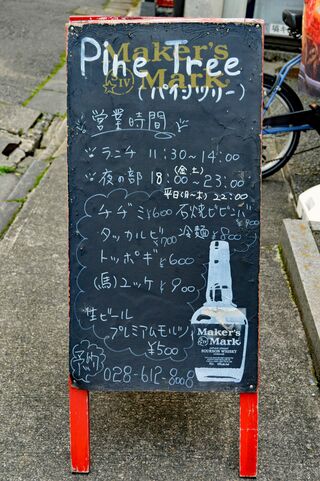 Maker's
Mark
Pine Tree
(パインツリー)
営業時間
ランチ 11:30~14:00
(金土)
夜の部 18:00~23:00
平日(日~木) 22:00
チヂミ¥600 石焼ビビンバ
¥900
タッカルビ¥700 冷麺¥800
トッポギ¥600
(馬)ユッケ¥900
生ビール
プレミアムモルツ
¥500
予約 028-612-8008
Maker's
Mark
BOURBON WHISKY